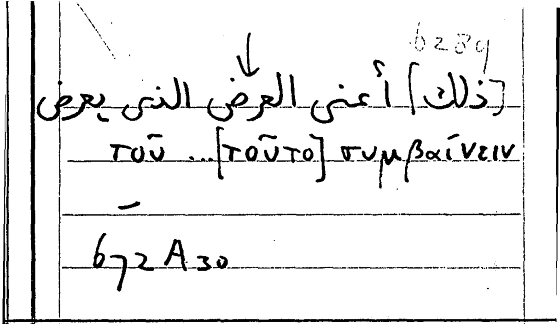 6289
[ذلك] أعنى العرض الذى يعرض
τοῦ ... [τοῦτο] συμβαίνειν
672 A 30